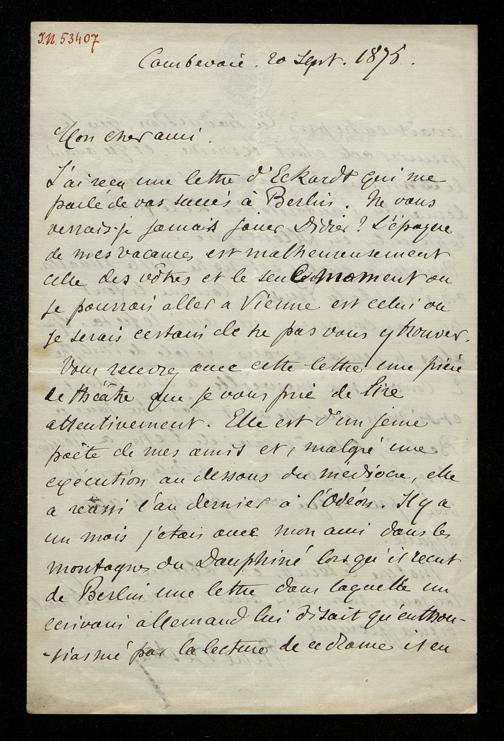 J.N. 53407
Courbevoie. 20 Sept. 1875.
Mon cher ami.
J'ai reçu une lettre d'Eckardt qui me
parle de vos succès à Berlin. Ne vous
verrai-je jamais jouer Didier? L'époque
de mes vacances est malheureusement
celle des vôtres et le seul moment ou
je pourrais aller a Vienne est celui ou
je serais certain de ne pas vous y trouver.
Vous recevrez avec cette lettre une pièce
de théâtre que je vous prie de lire
attentivement. Elle est d'un jeune
poëte de mes amis et, malgré une
exécution au dessous du médiocre, elle
a réussi l'an dernier à l'Odéon. Il y a
un mois j'étais avec mon ami dans les
montagnes du Dauphiné lorsqu'il recut
de Berlin une lettre dans laquelle un
écrivain allemand lui disait qu'enthou-
-siasmé par la lecture de ce drame il en